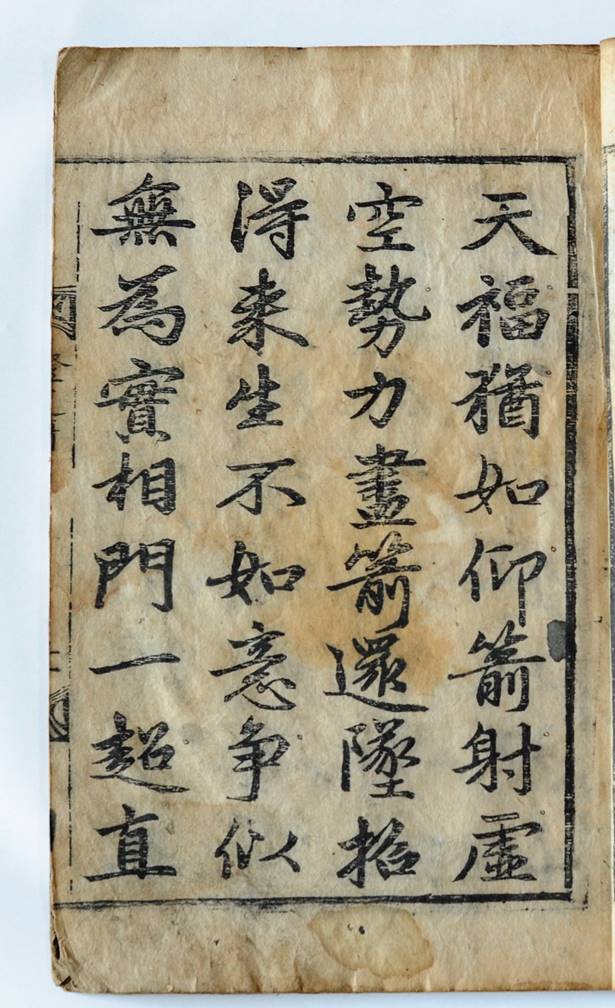 天福猶如仰箭射虛
空勢力盡箭還墜招
淂来生不如意争似
無為實相門一超直